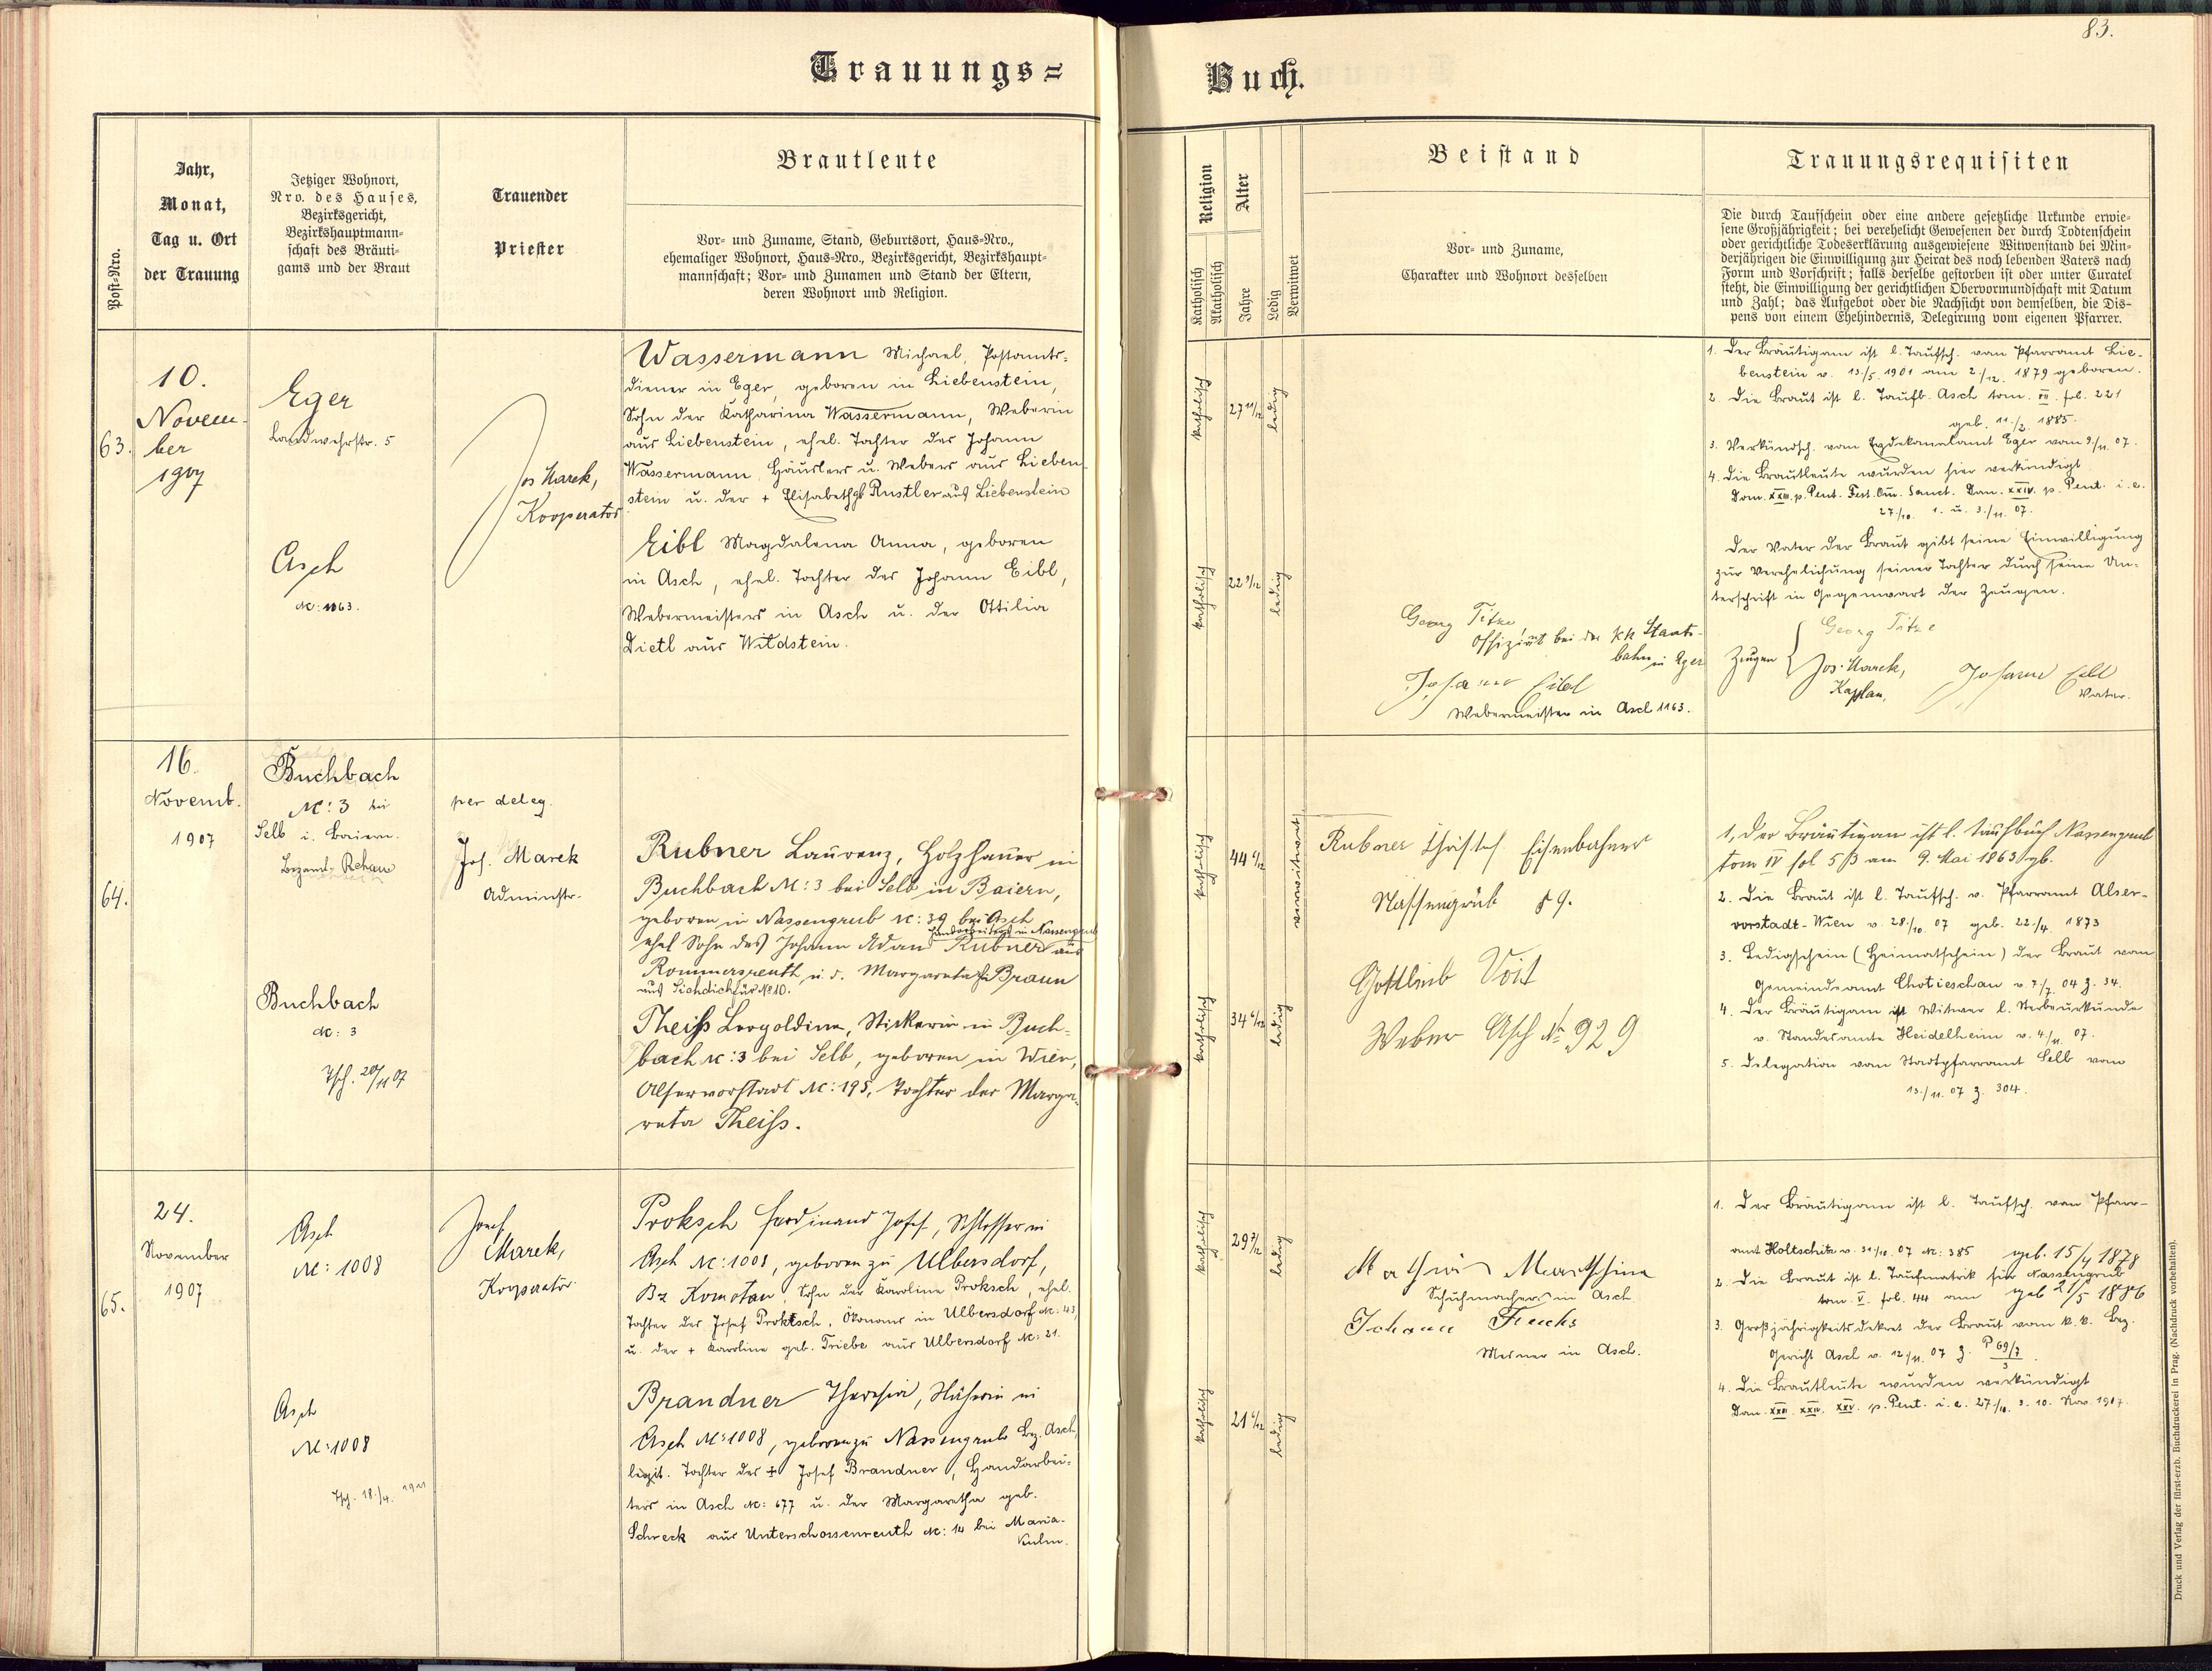 83.
Trauungs=
Buch.
Post-Nro.
Jahr,
Monat,
Tag u. Ort
der Trauung
Jetziger Wohnort,
Nro. des Hauses,
Bezirksgericht,
Bezirkshauptmann-
schaft des Bräuti-
gams und der Braut
Trauender
Priester
Brautleute
Vor- und Zuname, Stand, Geburtsort, Haus-Nro.,
ehemaliger Wohnort, Haus-Nro., Bezirksgericht, Bezirkshaupt-
mannschaft; Vor- und Zunamen und Stand der Eltern,
deren Wohnort und Religion.
Religion
Katholisch
Akatholisch
Alter
Jahre
Ledig
Verwitwet
Beistand
Vor- und Zuname,
Charakter und Wohnort desselben
Trauungsrequisiten
Die durch Taufschein oder eine andere gesetzliche Urkunde erwie-
sene Großjährigkeit; bei verehelicht Gewesenen der durch Todtenschein
oder gerichtliche Todeserklärung ausgewiesene Witwenstand bei Min-
derjährigen die Einwilligung zur Heirat des noch lebenden Vaters nach
Form und Vorschrift; falls derselbe gestorben ist oder unter Curatel
steht, die Einwilligung der gerichtlichen Obervormundschaft mit Datum
und Zahl; das Aufgebot oder die Nachsicht von demselben, die Dis-
pens von einem Ehehindernis, Delegirung vom eigenen Pfarrer.
63.
10.
Novem-
ber
1907
Eger
Landwehrstr. 5
Asch
N: 1163.
Jos Marek,
Kooperator
Wassermann Michael, Postamts-
diener in Eger, geboren in Liebenstein,
Sohn der Katharina Wassermann, Weberin
aus Liebenstein, ehel. Tochter des Johann
Wassermann Häuslers u. Webers aus Lieben-
stein u. der + Elisabeth gb Rustler aus Liebenstein
Eibl Magdalena Anna, geboren
in Asch, ehel. Tochter des Johann Eibl,
Webermeisters in Asch u. der Ottilia
Dietl aus Wildstein.
katholisch
27 11/12
ledig
katholisch
22 9/12
ledig
Georg Titze
Offiziant bei der kk Staats-
bahn in Eger
Johann Eibl
Webermeister in Asch 1163.
1. Der Bräutigam ist l. Taufsch. vom Pfarramt Lie-
benstein v. 13./5. 1901 am 2./12. 1879 geboren.
2. Die Braut ist l. Taufb. Asch tom. III. fol. 221
geb. 11./2. 1885.
3. Verkündsch. vom Erzdekanalamt Eger vom 9./11. 07.
4. Die Brautleute wurden hier verkündigt
Dom. XXIII. p. Pent. Fest. Om. Sanct. Dom. XXIV. p. Pent. i. e.
27./10. 1. u. 3./11. 07.
Der Vater der Braut gibt seine Einwilligung
zur Verehelichung seiner Tochter durch seine Un-
terschrift in Gegenwart der Zeugen.
Georg Titze
Zeugen Jos. Marek, Johann Eibl
Kaplan, Vater.
64.
16.
Novemb.
1907
Buchbach
N: 3 bei
Selb i. Baiern.
Bezamt: Rehau
Buchbach
N: 3
Tsch. 20/11 07
per deleg.
Jos. Marek
Administr.
Rubner Laurenz, Holzhauer in
Buchbach N: 3 bei Selb in Baiern,
geboren in Nassengrub N: 39 bei Asch
Handarbeiters in Nassengrub
ehel Sohn des Johann Adam Rubner aus
Rommersreuth u. d. Margareta gb Braun
aus Sichdichfür No 10.
Theiss Leopoldine, Stickerin in Buch-
bach N: 3 bei Selb, geboren in Wien,
Alservorstadt N: 195, Tochter der Marga-
reta Theiss.
katholisch
44 6/12
verwitwet
katholisch
34 6/12
ledig
Rubner Christof Eisenbahner
Nassengrub 89.
Gottlieb Voit
Weber Asch No 929
1, Der Bräutigam ist l. Taufbuch Nassengrub
tom IV fol 53 am 9. Mai 1863 gb.
2. Die Braut ist l. Taufsch. v. Pfarramt Alser-
vorstadt-Wien v. 28./10. 07 geb. 22./4. 1873
3. Ledigschein (Heimatschein) der Braut vom
Gemeindeamt Chotieschau v. 7./7. 04 Z. 34.
4. Der Bräutigam ist Witwer l. Sterbeurkunde
v. Standesamte Heidelheim v. 4/11. 07.
5. Delegation vom Stadtpfarramt Selb vom
13./11. 07 Z. 304.
65.
24.
November
1907
Asch
N: 1008
Asch
N: 1008
Tsch. 18./4.
Josef
Marek,
Kooperator
Proksch Ferdinand Josef, Schlosser in
Asch N: 1008, geboren zu Ulbersdorf,
Bz Komotau Sohn der Karoline Proksch, ehel.
Tochter des Josef Proksch, Ökonoms in Ulbersdorf N: 43
u. der + Karoline geb. Triebe aus Ulbersdorf N: 21.
Brandner Theresia, Näherin in
Asch N: 1008, geboren zu Nassengrub Bz. Asch,
legit. Tochter des + Josef Brandner, Handarbei-
ters in Asch N: 677 u. der Margaretha geb.
Schreck aus Unterschossenreuth N: 14 bei Maria-
Kulm.
katholisch
29 7/12
ledig
katholisch
21 6/12
ledig
Mathias Martschina
Schuhmacher in Asch
Johann Fuchs
Mesner in Asch.
1. Der Bräutigam ist l. Taufsch. vom Pfarr-
amt Holtschitz v. 31./10. 07 N: 385 geb. 15/4 1878
2. Die Braut ist l. Taufmatrik für Nassengrub
tom. V. fol. 44 am geb 21/5 1886
3. Großjährigkeitsdekret der Braut vom k. k. Bez.
Gericht Asch v. 12./11. 07 Z. P 69/7
3
4. Die Brautleute wurden verkündigt
Dom. XXIII. XXIV. XXV. p. Pent. i. e. 27./10. 3. 10. Nov. 1907.
Druck und Verlag der fürst-erzb. Buchdruckerei in Prag. (Nachdruck vorbehalten).